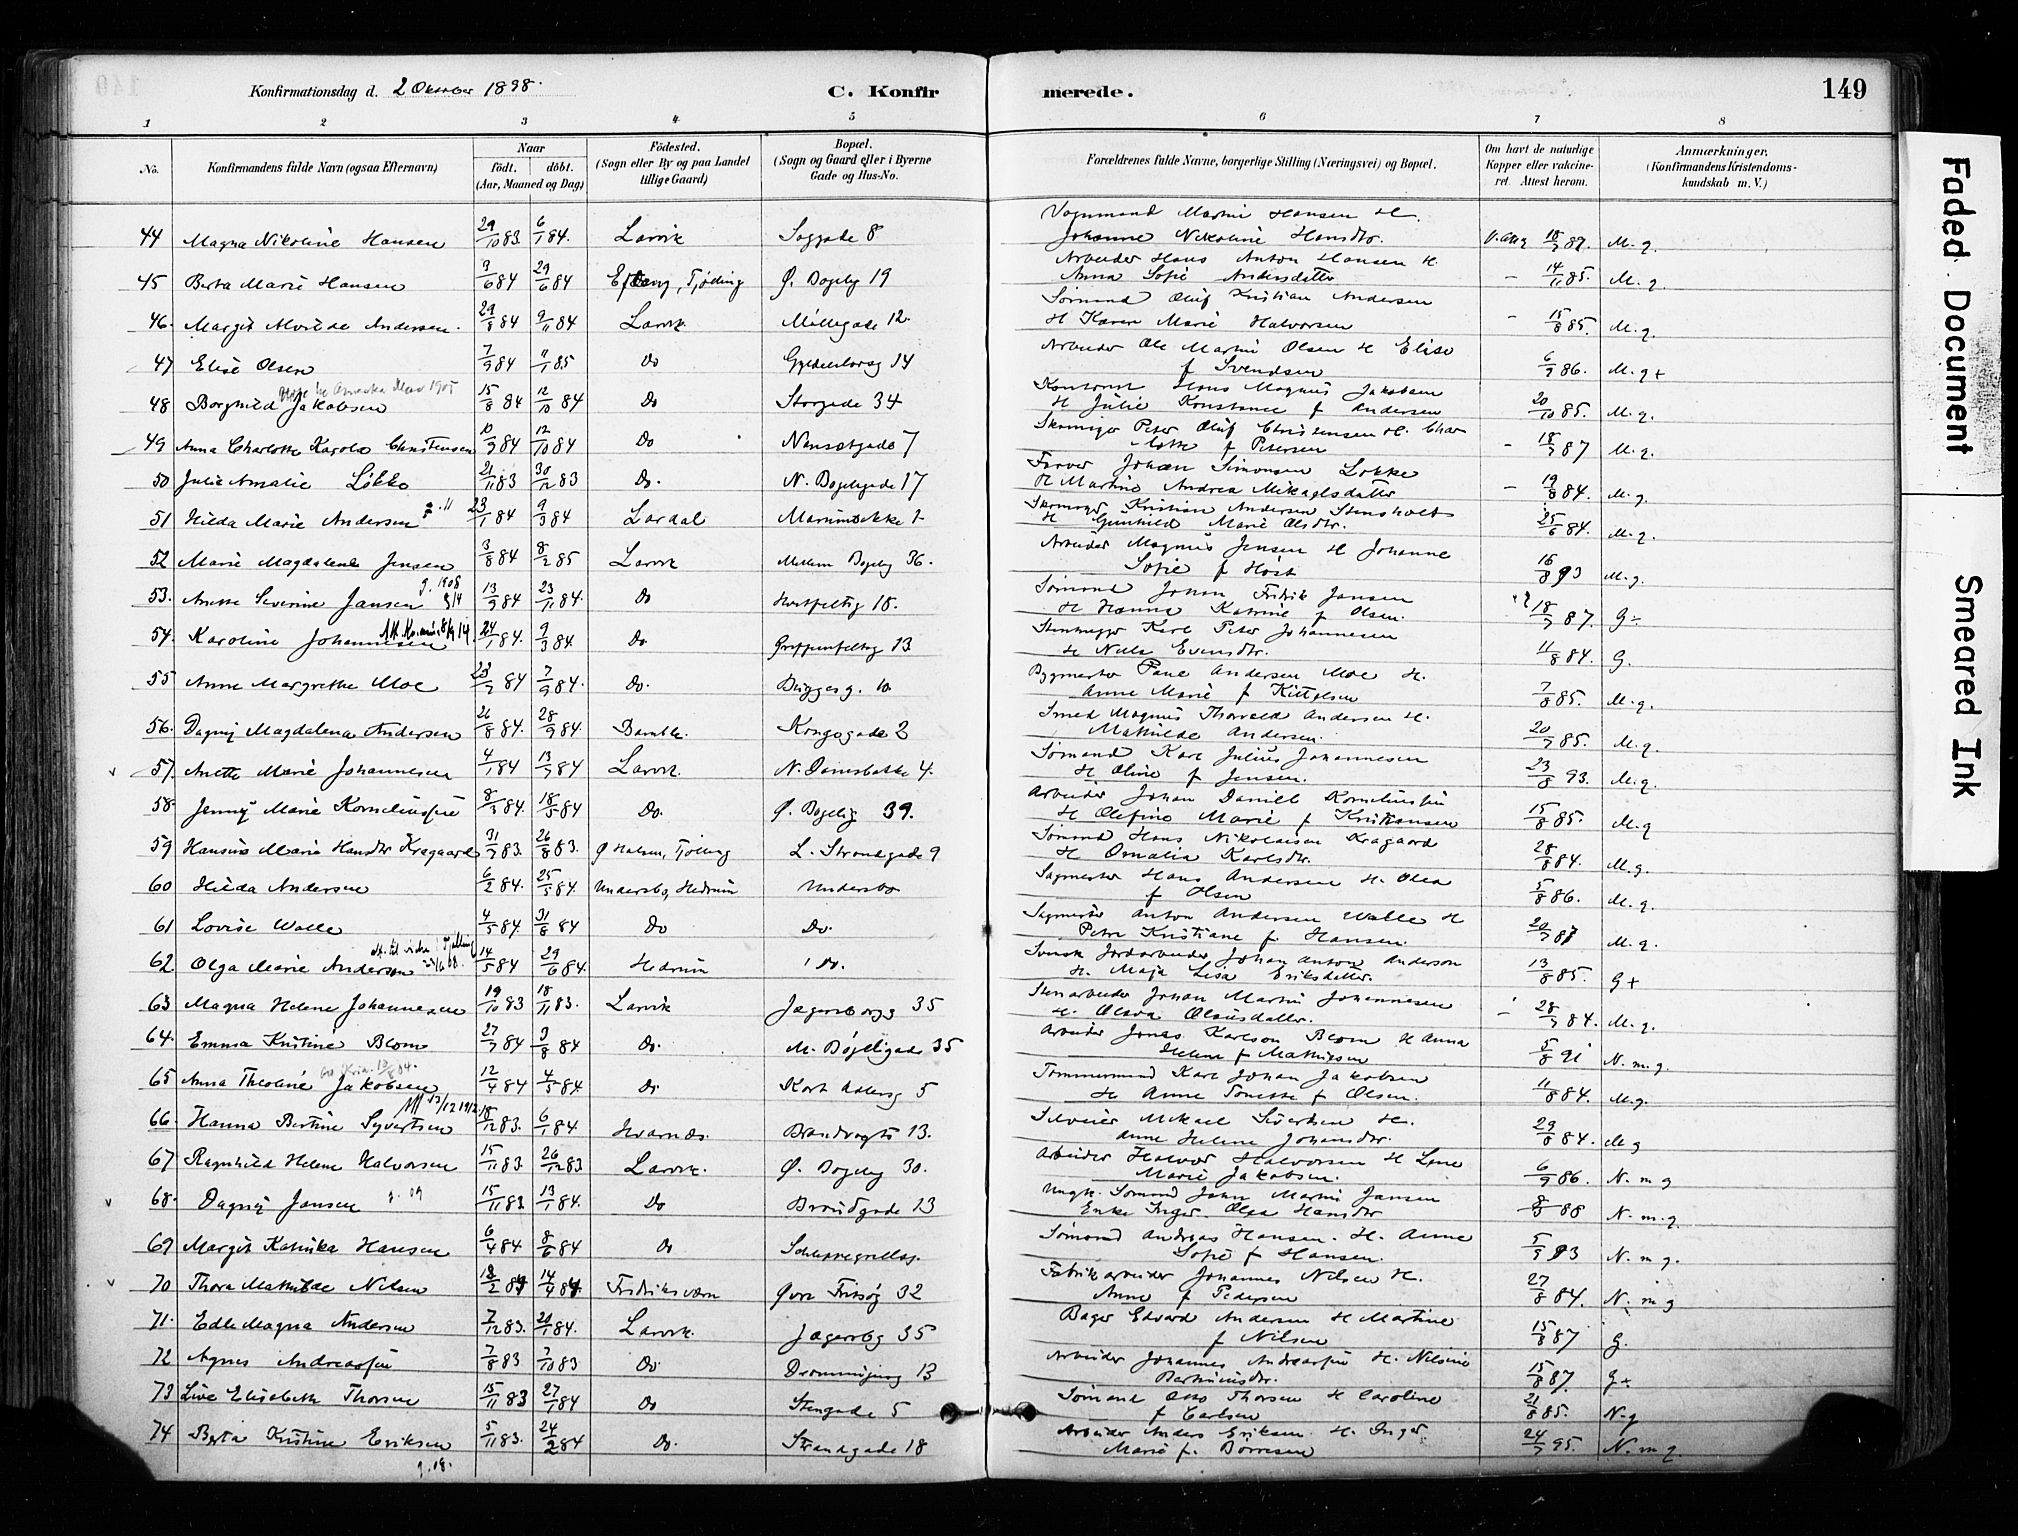 Konfirmationsdag d. 2 Oktober 1898. C. Konfirmerede. 149
1 2 3 4 5 6 7 8
No. Konfirmandens fulde Navn (ogsaa Efternavn) Naar födt. döbt. (Aar, Maaned og Dag) Födested. (Sogn eller By og paa Landet tillige Gaard) Bopæl. (Sogn og Gaard eller i Byerne Gade og Hus-No. Forældrenes fulde Navne, borgerlige Stilling (Næringsvei) og Bopæl. Om havt de naturlige Kopper eller vakcineret. Attest herom. Anmærkninger. (Konfirmandens Kristendomskundskab m. V.)
44 Magna Nikoline Hansen 29/10 83. 6/1 84. Larvik 8 Vognmand Martin Hansen H. Johanne Nikoline Hansdtr. 18/9 87. M. g.
45 Berta Marie Hansen 9/6 84 29/6 84 Tjølling Ø. Bogelg 19 Arbeider Hans Anton Hansen H. Anna Sofie Andersdatter - 14/11 85. M. g.
46. Margit Alvilde Andersen. 29/8 84 9/11 84 Larvik. Møllegade 12. Sømand Oluf Kristian Andersen H Karen Marie Halvorsen - 15/8 85. M. g.
47 Elise Olsen 7/9 84 11/1 85 Do Gyldenløvesg 14 Arbeider Ole Martin Olsen H Elise f Svendsen 6/9 86. M. g +
48 Borghild Jakobsen 15/8 84 12/10 84 Do Storgade 34 Kontorist Hans Magnus Jakobsen H Julie Konstance f Andersen 20/10 85. M. g.
49 Anna Charlotte Karola Christensen 10/9 84 12/10 84 Do Nansetgade 7 Peter Oluf Christensen H. Charlotte f Petersen - 18/9 87 M. g.
50 Julie Amalie Løkke 21/11 83 30/12 83 Do. N. Bogelgade 17 Farver Johan Simonsen Løkke H Martine Andrea Mikaelsdatter - 19/8 84. M. g.
51 Hilda Marie Andersen 23/1 84 9/3 84 Lardal Kristian Andersen Stensholt H Gunhild Marie Olsdtr. 25/6 84. M. g.
52 Marie Magdalene Jensen 3/8 84 8/2 85 Larvik Mellem Bogelg 36. Arbeider Magnus Jensen H Johanne Sofie f Høst 16/8 93 M. g.
53. Anette Severine Jansen g. 1908 13/9 84 23/11 84. Do 18. Sømand Johan Fredrik Jansen H Hanna Katrine f Olsen. 18/9 87. G ÷
54. Karoline Johannesen 24/1 84. 9/3 84. Do. Griffenfeltsg 13. Stenhugger Karl Peter Johannesen H Nula Evensdtr. 11/8 84. G.
55 Anne Margrethe Moe 23/7 84 7/9 84. Do. Bryggerg. 10. Bygmester Andersen Moe H. Anne Marie f Kittelsen 7/8 85. M. g.
56. Dagny Magdalena Andersen 26/8 84. 28/9 84. Bamble. Kongegade 2 Smed Magnus Thorvald Andersen H. Mathilde Andersen. 20/9 85. M. g.
57. Anette Marie Johannesen 4/1 84 13/7 84 Larvik. 4. Sømand Karl Julius Johannesen H Oline f Jensen. 23/8 93. M. g.
58. Jenny Marie Korneliussen 8/3 84. 18/5 84 Do. Ø. Bogelg 39. Arbeider Johan Daniel Korneliussen H Olefine Marie f Kristiansen 15/8 85. M. g
59 Hansine Marie Hansdtr Kragaard 31/7 83. 26/8 83. Ø Halsen, Tjølling L. Strandgade 9 Sømand Hans Nikolaisen Kragaard H Omalia Karlsdtr. 28/8 84. M. g.
60 Hilda Andersen 6/2 84. 25/5 84 Undersbo, Hedrum Undersbo Sagmester Hans Andersen H. Olea f Olsen 5/8 86. M. g.
61 Lovise Walle 4/5 84 31/8 84 Do Do. Sagmester Anton Andersen Walle H Petra Kristiane f. Hansen. 20/9 87 M. g.
62. Olga Marie Anderson 14/5 84 29/6 84. Hedrum Do. Svensk Jordarbeider Johan Anton Anderson H. Maja Lisa Eriksdatter. 13/8 85. G +
63 Magna Helene Johannesen 19/10 83 18/11 83. Larvik Jægersborgs 35 Stenarbeider Johan Martin Johannesen H. Olava Olausdatter. - 28/9 84. M. g.
64. Emma Kristine Blom 27/7 84 3/8 84 Do. M. Bøjeligade 35 Arbeider Jonas Karlson Blom H Anna Helene f Mathisen 5/8 91 N. m. g.
65 Anna Theoline Jakobsen 12/4 84 4/5 84 Do. Kort Adlersg 5 Tømmermand Karl Johan Jakobsen H Anne Tomette f Olsen. 11/8 84. M. g.
66. Hanna Bertine Syvertsen 13/12 1912 18/12 83. 6/1 84 Hvarnes. Brandvagts 13. Mikael Sivertsen H. Anne Helene Johansdtr. 29/8 84. M g
67 Ragnhild Helene Halvorsen 15/11 83 26/12 83 Larvik. Ø. Bogelg 30. Arbeider Halvor Halvorsen H Line Marie Jakobsen. 6/9 86. N. m g
68. Dagny Jansen g. 09 15/11 83 13/1 84. Do 13 Ungk. Sømand John Martin Jansen Enke Inger Olea Hansdtr 8/8 88 N. m. g.
69 Margit Katinka Hansen 6/4 84 8/6 84 Do Schleppegrellsg. Sømand Andreas Hansen. H. Anne Sofie f Hansen. 5/9 93 N. m g.
70 Thora Mathilde Nilsen 18/2 84 14/4 84. Fredriksværn Øvre Fritsøg 32 Fabrikarbeider Johannes Nilsen H. Anne f Pedersen 27/8 84. N. m g
71. Edle Magna Andersen 7/12 83. 20/1 84. Larvik. Jægersbg 35 Bager Edvard Andersen H Martine f Nilsen 15/8 87 G.
72 Agnes Andreassen 7/8 83 7/10 83 Do. Dronningensg 13 Arbeider Johannes Andreassen H. Nilsine 15/8 87. G ÷
73 Live Elisabeth Thorsen 15/11 83 27/1 84 Do Stengade 5 Sømand Otto Thorsen H Caroline f Carlsen 21/8 85. N. g
74 Berta Kristine Eriksen 5/11 83. 24/2 84 Do. Strandgade 18 Arbeider Anders Eriksen. H. Inger Marie f. Børresen 24/7 95. N. m g.
g. 08.
Faded Document
Smeared Ink